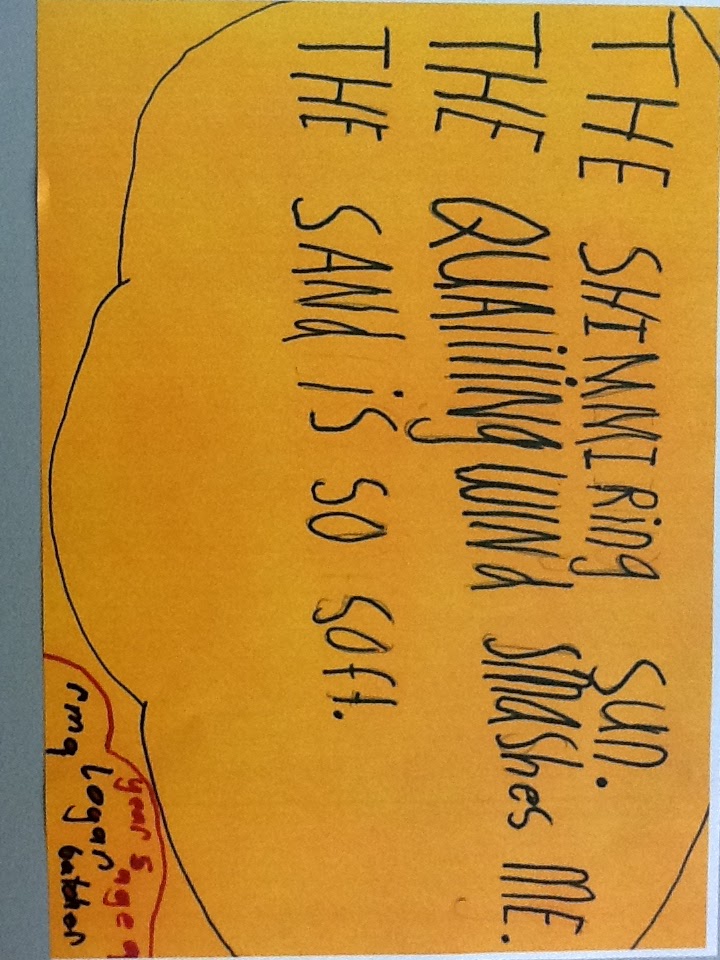 THE SHIMMIRing sun.
THE QUALIIIINg WINd smashes ME.
THE SANd iS SO soft.
year 5 age 9
rm9 Logan
batcher